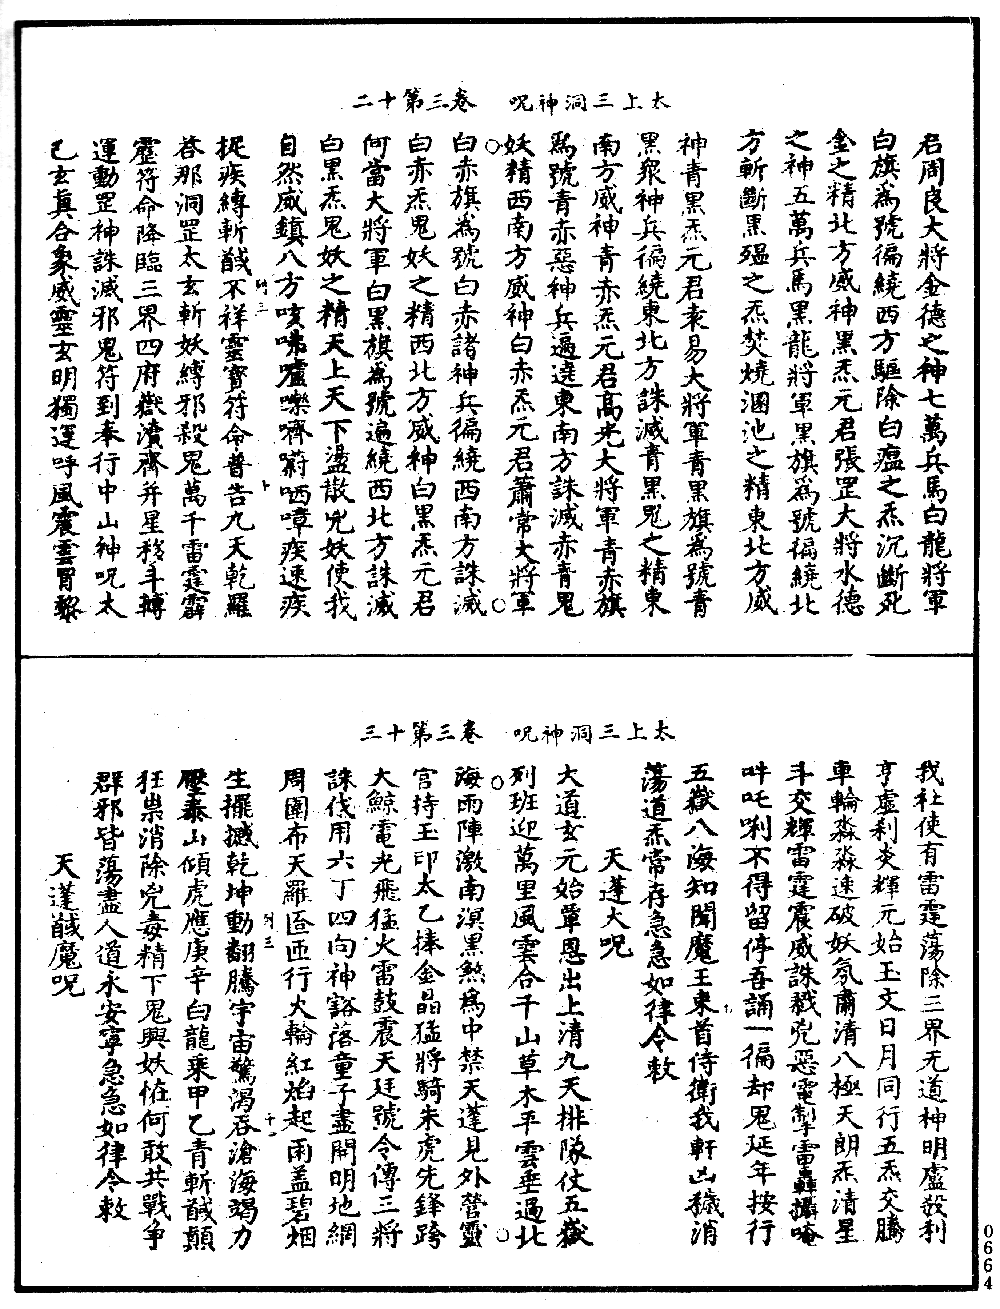 太上三洞神呪　卷三第十二
君周良大將金德之神七萬兵馬白龍將軍
白旗爲號徧繞西方驅除白瘟之炁沉斷死
金之精北方威神黑炁元君張罡大將水德
之神五萬兵馬黑龍將軍黑旗爲號徧繞北
方斬斷黑瘟之炁焚燒溷池之精東北方威
神青黑炁元君袁易大將軍青黑旗爲號青
黑衆神兵徧繞東北方誅滅青黑鬼之精東
南方威神青赤炁元君高光大將軍青赤旗
爲號青赤惡神兵遍遶東南方誅滅赤青鬼
妖精西南方威神白赤炁元君蕭常大將軍
白赤旗爲號白赤諸神兵徧繞西南方誅滅
白赤炁鬼妖之精西北方威神白黑炁元君
何當大將軍白黑旗爲號遍繞西北方誅滅
白黑炁鬼妖之精天上天下盪散兇妖使我
自然威鎮八方咳咈嚧嚛嚌𠹗哂嘷疾速疾
捉疾縛斬馘不祥靈寶符命普告九天乾羅
荅那洞罡太玄斬妖縛邪殺鬼萬千雷霆霹
靂符命降臨三界四府嶽瀆齊幷星移斗轉
運動罡神誅滅邪鬼符到奉行中山神呪太
乙玄眞合象威靈玄明獨運呼風震雲腎黎
太上三洞神呪　卷三第十三
我社使有雷霆蕩除三界无道神明盧殺利
亨虛利炎輝元始玉文日月同行五炁交騰
車輪淼淼速破妖氛肅清八極天朗炁清星
斗交輝雷霆震威誅戮兇惡電掣雷轟攝唵
吽吒唎不得留停吾誦一徧却鬼延年按行
五嶽八海知聞魔王束首侍衛我軒凶穢消
蕩道炁常存急急如律令敕
天蓬大呪
大道玄元始覃恩出上清九天排隊仗五嶽
列班迎萬里風雲合千山草木平雲垂過北
海雨陣激南溟黑煞爲中禁天蓬見外營靈
官持玉印太乙捧金晶猛將騎朱虎先鋒跨
大鯨電光飛猛火雷鼓震天廷號令傳三將
誅伐用六丁四向神谿落童子盡閉明地網
周圍布天羅匼匝行火輪紅焰起雨盖碧烟
生擺撼乾坤動翻騰宇宙驚渴吞滄海竭力
壓泰山傾虎應庚辛白龍乘甲乙青斬馘顛
狂祟消除兇毒精下鬼興妖恠何敢共戰爭
群邪皆蕩盡人道永安寧急急如律令敕
天蓬馘魔呪
0664